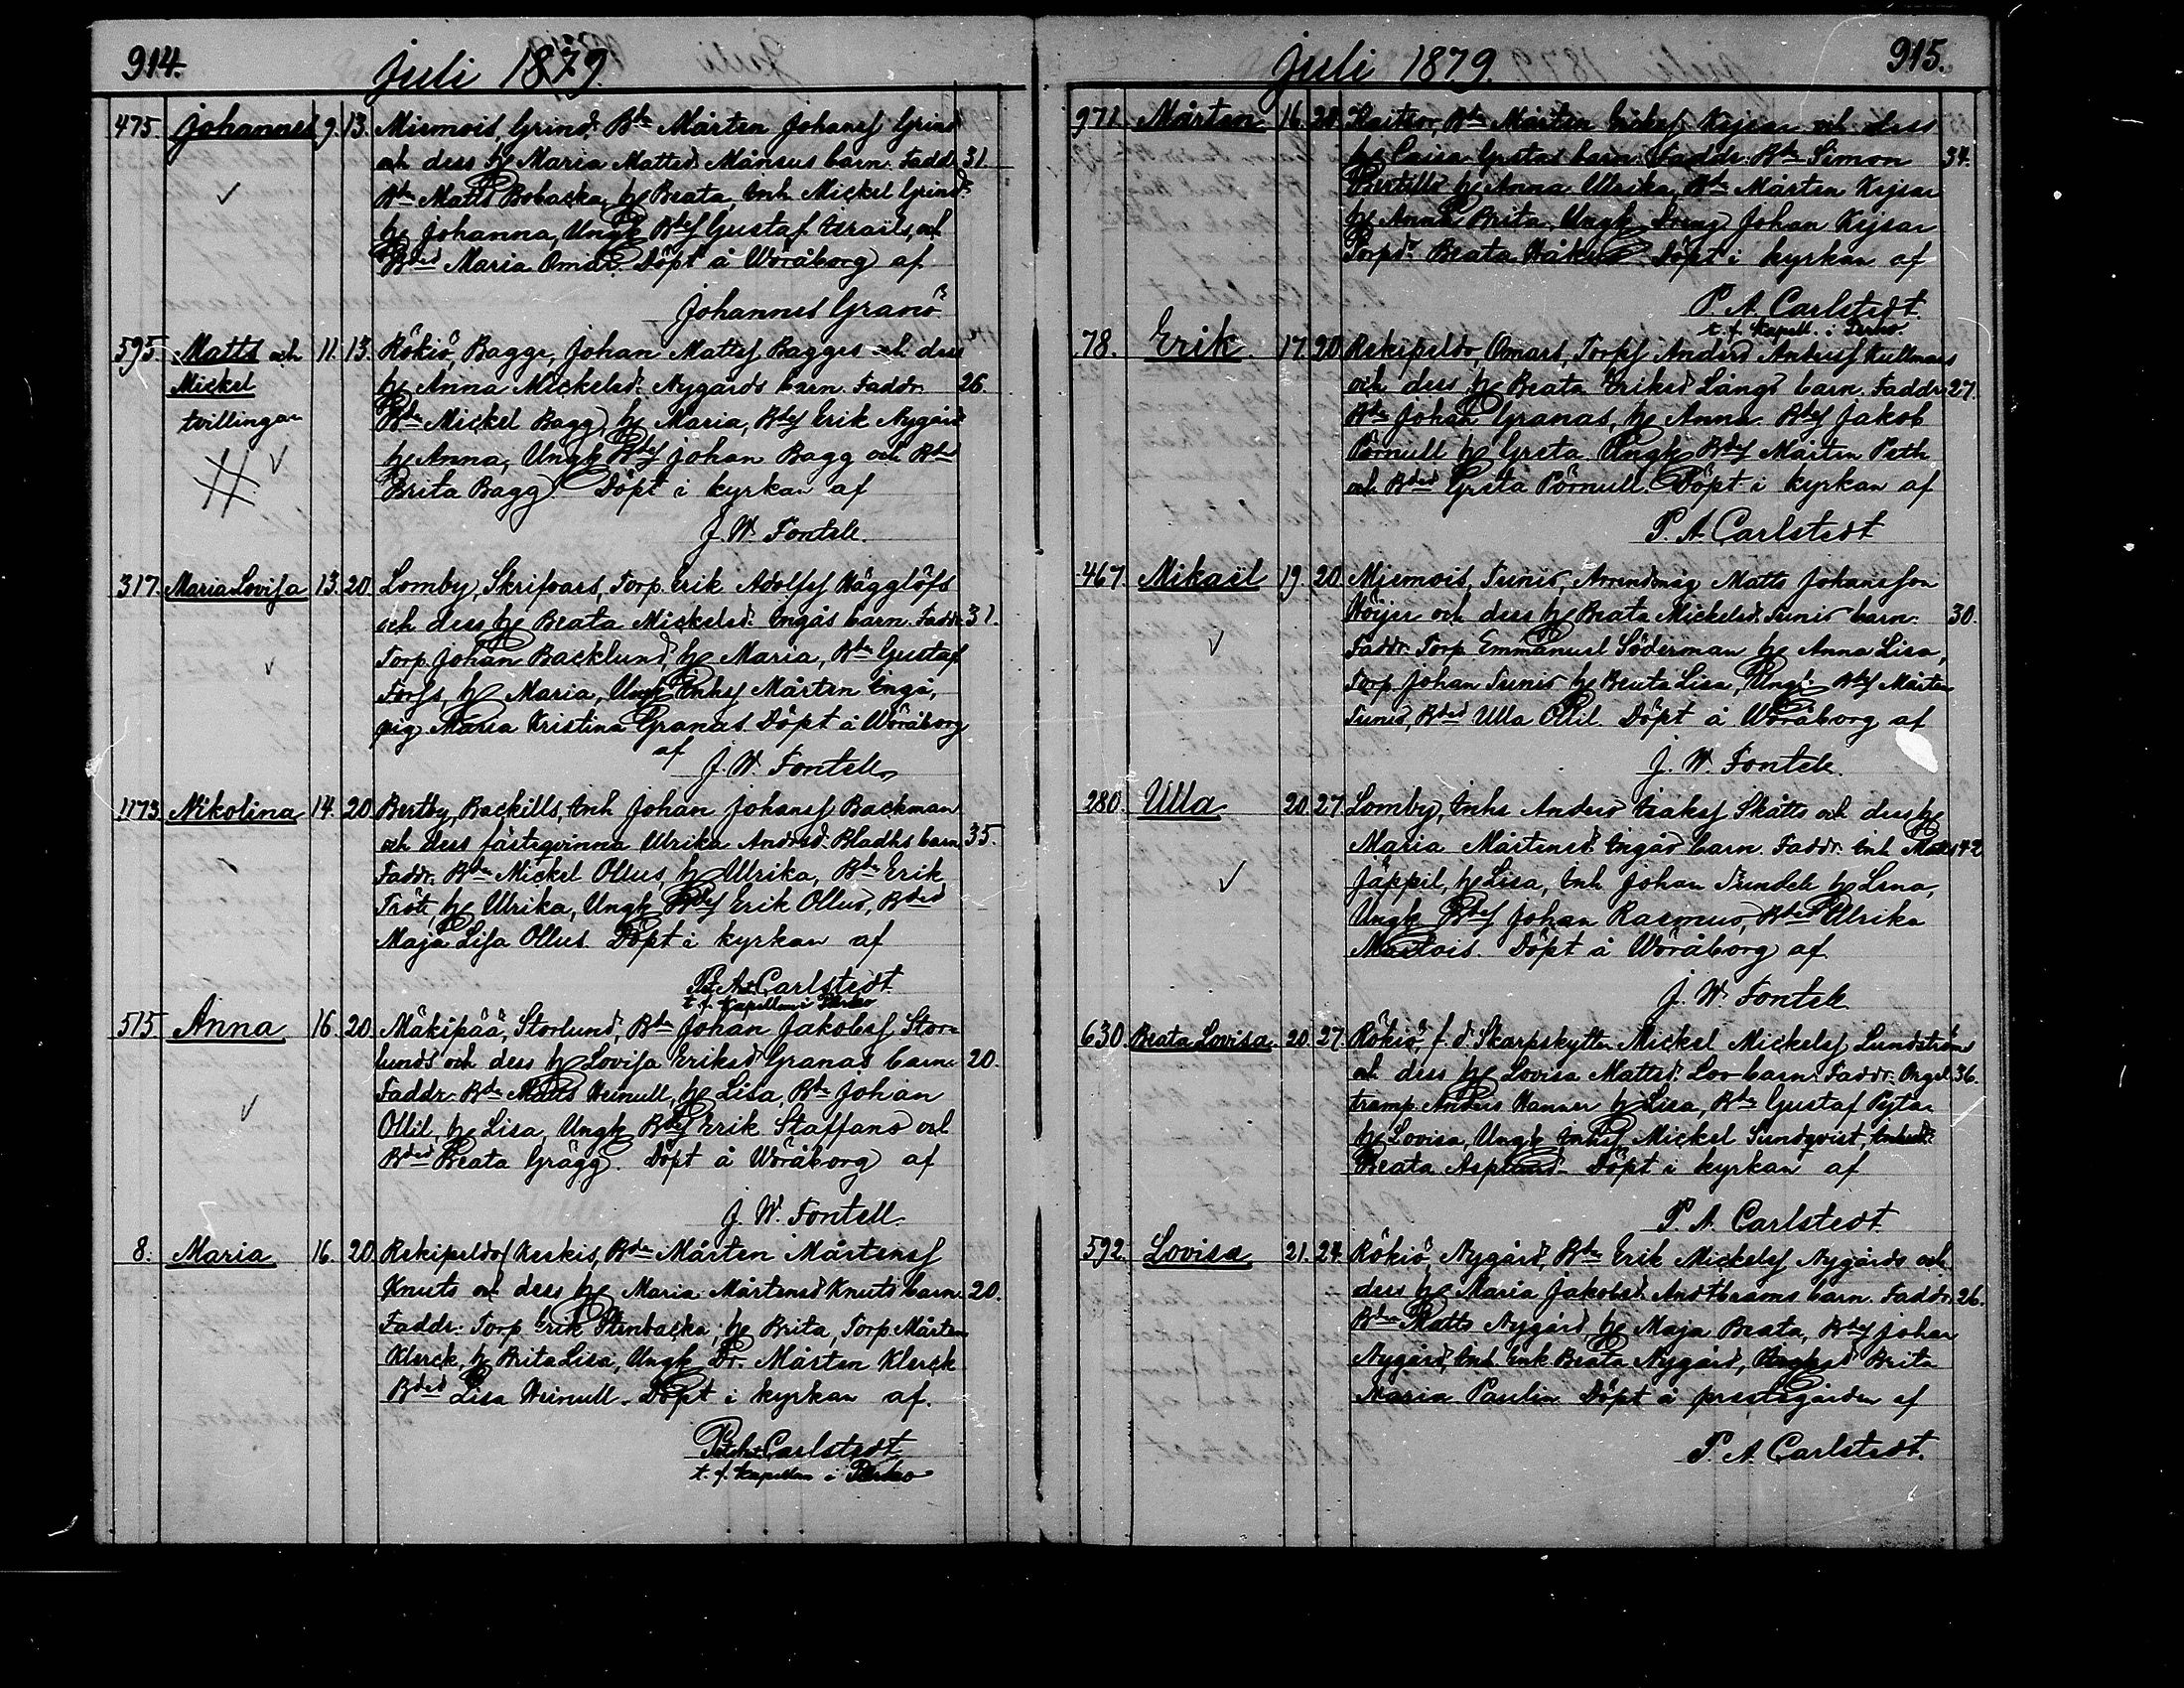 914.
Juli 1879.
475. Johannes 9. 13. Miemois, Grind. Bdn Mårten Johansf Grind
och dess h Maria Mattsd. Månsus barn. Faddr. 31.
Bdn Matts Bobacka, h Beata, Inh Mickel Grind
h Johanna, Ungk Bdsf Gustaf Israils, och
Bdsd Maria Omars. Döpt å Wöråborg af
Johannes Granö
595. Matts och 11. 13. Rökiö, Bagge, Johan Mattsf Bagges och dess
Mickel h Anna Mickelsd. Nygårds barn. Faddr. 26.
tvillingar Bdn Mickel Bagg, h Maria, Bdsf Erik Nygård
h Anna, Ungk Bdsf Johan Bagg och Bdsd
Brita Bagg. Döpt i kyrkan af
J. W. Fontell.
317. Maria Lovisa 13. 20 Lomby, Skrifvars, Torp. Erik Adolfsf Hägglöfs
och dess h Beata Mickelsd. Ingås barn. Faddr. 31.
Torp. Johan Backlund, h Maria, Bdn Gustaf
Forss, h Maria, Ungk Inhsf Mårten Ingå,
pig Maria Kristina Granas. Döpt å Wöråborg
af
J. W. Fontell
1173 Nikolina 14. 20 Bertby, Backills, Inh Johan Johansf Backman
och dess fästeqvinna Ulrika Andersd. Bladhs barn. 35.
Faddr. Bdn Mickel Ollus, h Ulrika, Bdn Erik
Tröti h Ulrika, Ungk Bdsf Erik Ollus, Bdsd
Maja Lisa Ollus. Döpt i kyrkan af
Pet. A. Carlstedt.
t. f. Kapellan i
515 Anna 16. 20. Mäkipää, Storlund, Bdn Johan Jakobsf Stor-
lunds och dess h Lovisa Eriksd Granas barn. 20.
Faddr. Bdn Matts Heinull, h Lisa, Bdn Johan
Ollil, h Lisa, Ungk Bdsf Erik Staffans och
Bdsd Beata Grägg. Döpt å Wöråborg af
J. W. Fontell.
8. Maria 16. 20. Rekipeldo, Keskis, Bdn Mårten Mårtensf
Knuts och dess h Maria Mårtensd Knuts barn. 20.
Faddr. Torp Erik Stenbacka, h Brita, Torp Mårten
Klerck, h Brita Lisa, Ungk Dr. Mårten Klerck
Bdsd Lisa Heinull. Döpt i kyrkan af.
Carlstedt
t. f. Kapellan i
915.
Juli 1879.
971 Mårten 16. 20. Kaitsor, Bdn Mårten Ericksf Kejsar och dess
h Caisa Gustas barn. Faddr. Bdn Simon 34.
Bertills h Anna Ulrika, Bdn Mårten Kejsar
h Anna Brita, Ungk Dreng Johan Kejsar
Torpd. Beata Håkans. Döpt i kyrkan af
P. A. Carlstedt.
t. f. Kapell. i
78. Erik 17. 20 Rekipeldo, Omars, Torpf Anders Andersf Kullmans
och dess h Beata Eriksd Långs barn. Faddr. 27.
Bdn Johan Granas, h Anna. Bdsf Jakob
Pörnull h Greta. Ungk Bdsf Mårten Peth
och Bdsd Greta Pörnull. Döpt i kyrkan af
P. A. Carlstedt
467. Mikaël 19. 20. Miemois, Tunis, Arrendmåg Matts Johansson
Höijer och dess h Beata Mickelsd. Tunis barn. 30.
Faddr. Torp. Emmanuel Söderman h Anna Lisa,
Torp. Johan Tunis h Beata Lisa, Ungk Bdsf Mårten
Tunis, Bdsd Ulla Ollil. Döpt å Wöråborg af
J. W. Fontell.
280. Ulla 20. 27. Lomby, Inhs Anders Isaksf Skåtts och dess h
Maria Mårtensd. Ingås barn. Faddr. Inh Matts 42
Jäppil, h Lisa, Inh Johan h Lena,
Ungk Bdsf Johan Rasmus, Bdsd Ulrika
Döpt å Wöråborg af
J. W. Fontell.
630. Beata Lovisa 20. 27. Rökiö f. d. Skarpskytten Mickel Mickelsf Lundströms
och dess h Lovisa Mattsd. Loo barn. Faddr. Orgel- 36.
tramp. Anders Hanner h Lisa, Bdn Gustaf Pejtar
h Lovisa, Ungk Inhsf Mickel Sundqvist, Inhsd.
Beata Asplund. Döpt i kyrkan af
P. A. Carlstedt
592. Lovisa 21. 27. Rökiö, Nygård, Bdn Erik Mickelsf Nygårds och
dess h Maria Jakobsd. Andtbrams barn. Faddr. 26.
Bdn Matts Nygård, h Maja Beata, Bdsf Johan
Nygård, Inh Enk Beata Nygård, Brita
Maria Paulin. Döpt å prestgården af
P. A. Carlstedt.